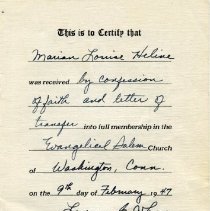 This is to Certify that
Marian Louise Heline
was received by confession
of faith and letter of
transfer into full membership in the
Evangelical Salem Church
of Washington, Conn.
on the 9th day of February 1947